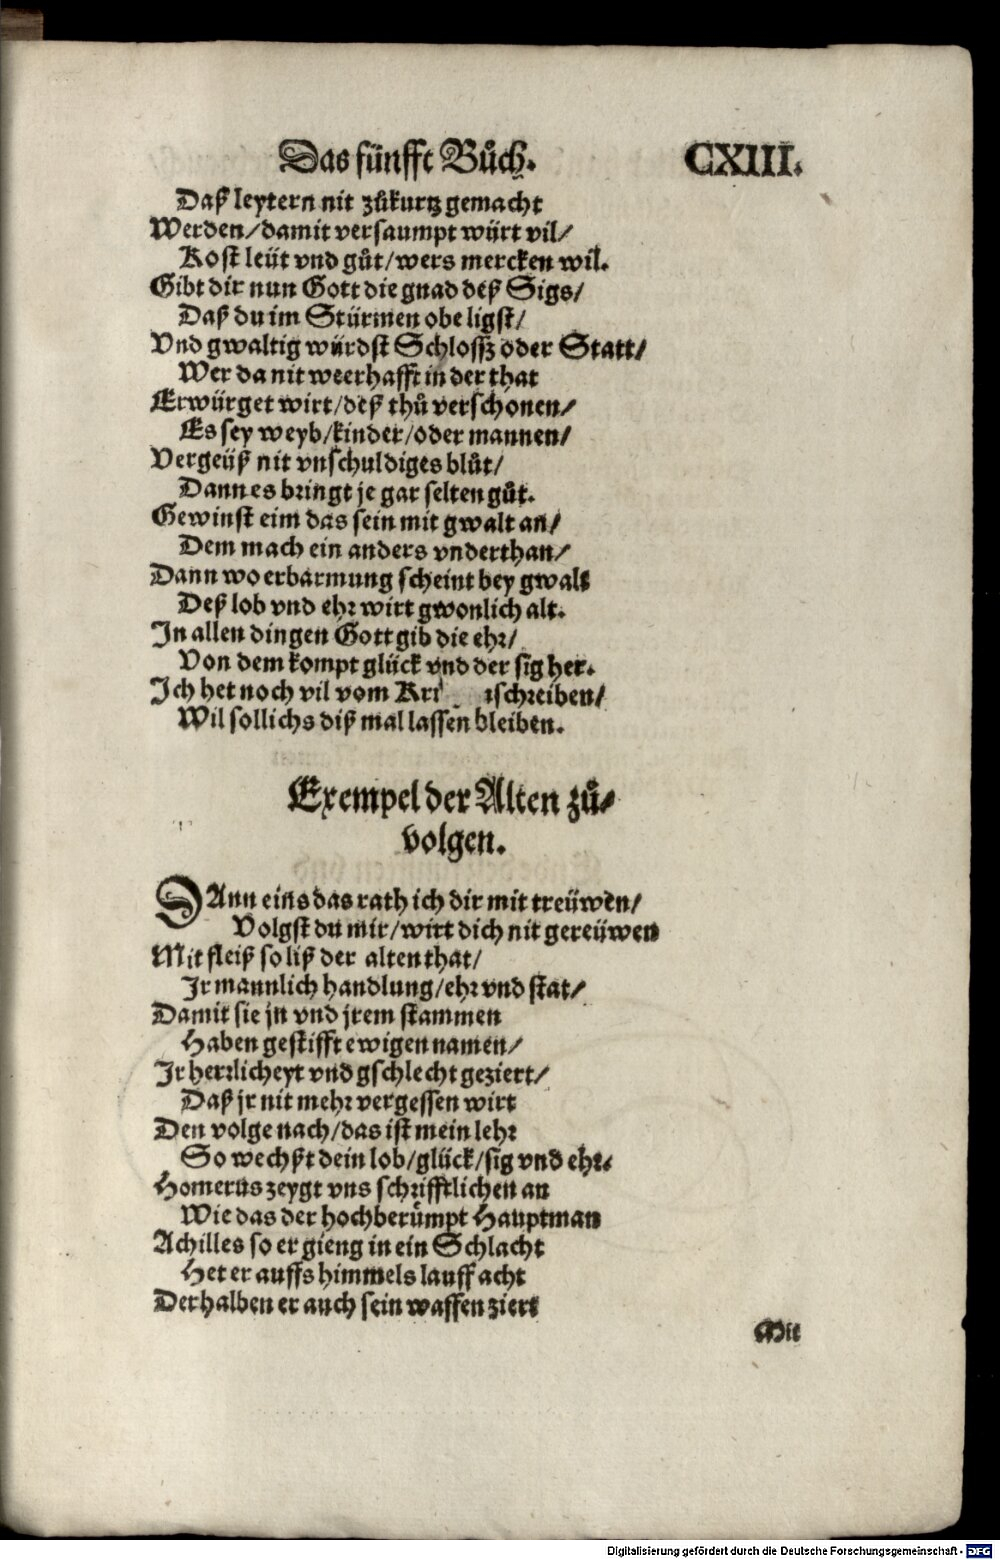 Das fünfft Bůch. CXIII.
Daß leytern nit zůkurtz gemacht
Werden/damit versaumpt würt vil/
Kost leüt vnd gůt/wers mercken wil.
Gibt dir nun Gott die gnad deß Sigs/
Daß du im Stürmen obeligst/
Vnd gwaltig würdst Schlosß oder Statt/
Wer da nit weerhafft in der that
Erwürget wirt/deß thů verschonen/
Es sey weyb/kinder/oder mannen/
Vergeüß nit vnschuldiges blůt/
Dann es bringt je gar selten gůt.
Gewinst eim das sein mit gwalt an/
Dem mach ein anders vnderthan/
Dann wo erbarmung scheint bey gwalt
Deß lob vnd ehr wirt gwonlich alt.
In allen dingen Gott gib die ehr/
Von dem kompt glück vnd der sig her.
Ich het noch vil vom schreiben/
Wil sollichs diß mal lassen bleiben.
Exempel der Alten zů/
volgen.
DAnn eins das rath ich dir mit treüwen/
Volgst du mir/wirt dich nit gereüwen
Mit fleiß so liß der alten that/
Ir mannlich handlung/ehr vnd stat/
Damit sie jn vnd jrem stammen
Haben gestifft ewigen namen/
Ir herrlicheyt vnd gschlecht geziert/
Daß jr nit mehr vergessen wirt
Den volge nach/das ist mein lehr
So wechßt dein lob/glück/sig vnd ehr.
Homerus zeygt vns schrifftlichen an
Wie das der hochberümpt Hauptman
Achilles so er gieng in ein Schlacht
Het er auffs himmels lauff acht
Derhalben er auch sein waffen ziert
Mit
Digitalisierung gefördert durch die Deutsche Forschungsgemeinschaft - DFG